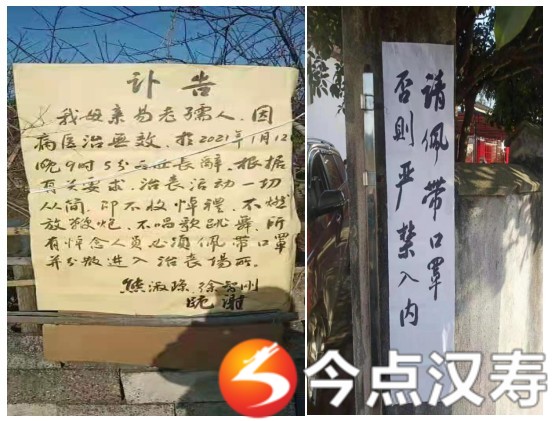 讣告
我母亲易老孺人,因
病医治无效,于2021年1月12
晚9时5分与世长辞.根据
有关要求,治丧活动一切
从简,即不收悼禮,不燃
放鞭炮,不唱歌跳舞,所
有悼念人员必须佩带口罩
并分散进入治丧場所。
熊淑琼 徐 刚
晚 谢
请佩带口罩
否则严禁入内
今点汉寿